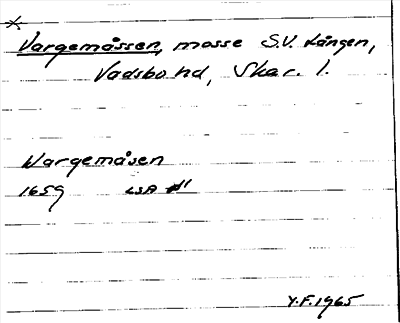 *
Vargemåssen, mosse S.V. Lången,
Vadsbo hd, Skar. l.
Wargemåsen
1659 LSA
Y.F. 1965